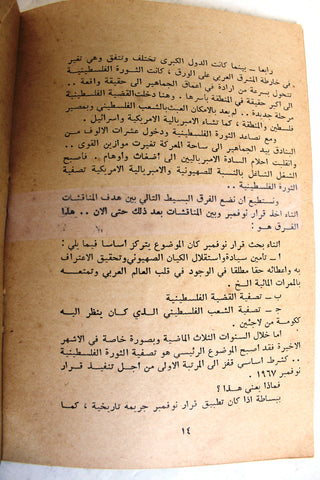 رابعا ـ بينما كانت الدول الكبرى تختلف وتتفق وهي تغير
في خارطة المشرق العربي على الورق ، كانت الثورة الفلسطينية
تتحول بسرعة من ارادة في اعماق الجماهير الى حقيقة ثم
الى اكبر حقيقة في المنطقة بأسرها . وهنا دخلت القضية الفلسطينية
مرحلة جديدة .. لم يعد بالامكان العبث بالشعب الفلسطيني وبمصير
فلسطين والمنطقة ، كما تشاء الامبريالية الامريكية واسرائيل .
ومع تصاعد الثورة الفلسطينية ودخول عشرات الالوف من
البنادق بيد الجماهير الى ساحة المعركة تغيرت موازين القوى ..
وانقلبت احلام السادة الامبرياليين الى أضغاث وأوهام . فاصبح
الشغل الشاغل بالنسبة للصهيونية والامبريالية الامريكية تصفية
الثورة الفلسطينية ..
ونستطيع ان نضع الفرق البسيط التالي بين هدف المناقشات
اثناء اخذ قرار نوفمبر وبين المناقشات بعد ذلك حتى الان .. هذا
الفرق هو :
اثناء بحث قرار نوفمبر كان الموضوع يتركز أساسا فيما يلي :
أ ـ تأمين سيادة واستقلال الكيان الصهيوني وتحقيق الاعتراف
به واعطائه حقا مطلقا في الوجود في قلب العالم العربي وتمتعه
بالممرات المائية الخ .
ب ـ تصفية القضية الفلسطينية
ج ـ تصفية الشعب الفلسطيني الذي كان ينظر اليه
ككومة من لاجئين .
اما خلال السنوات الثلاث الماضية وبصورة خاصة في الاشهر
الاخيرة فقد اصبح الموضوع الرئيسي هو تصفية الثورة الفلسطينية
.. كشرط اساسي قفز الى المرتبة الاولى من اجل تنفيذ قرار
نوفمبر ١٩٦٧ .
فماذا يعني هذا ؟
ببساطة اذا كان تطبيق قرار نوفمبر جريمة تاريخية ، كما
١٤